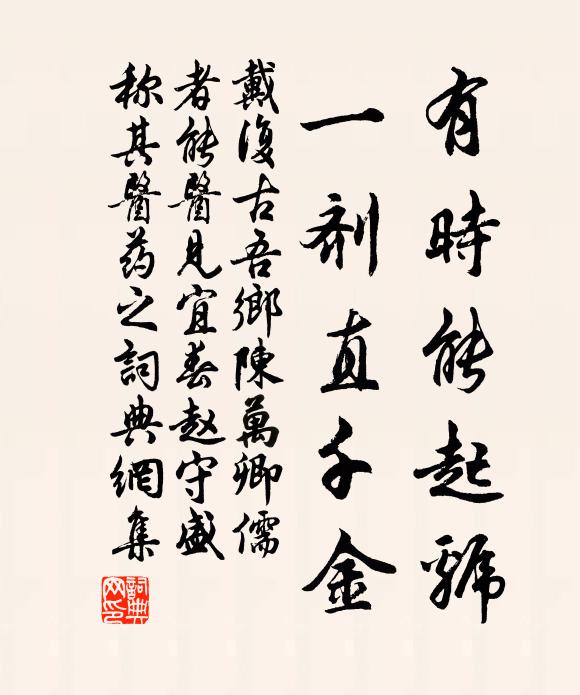 有時能起虢
一剂直千金
戴復古吾鄉陳萬卿儒
者能醫見宜春赵守盛
称其醫药之詞典網集
詞典网印